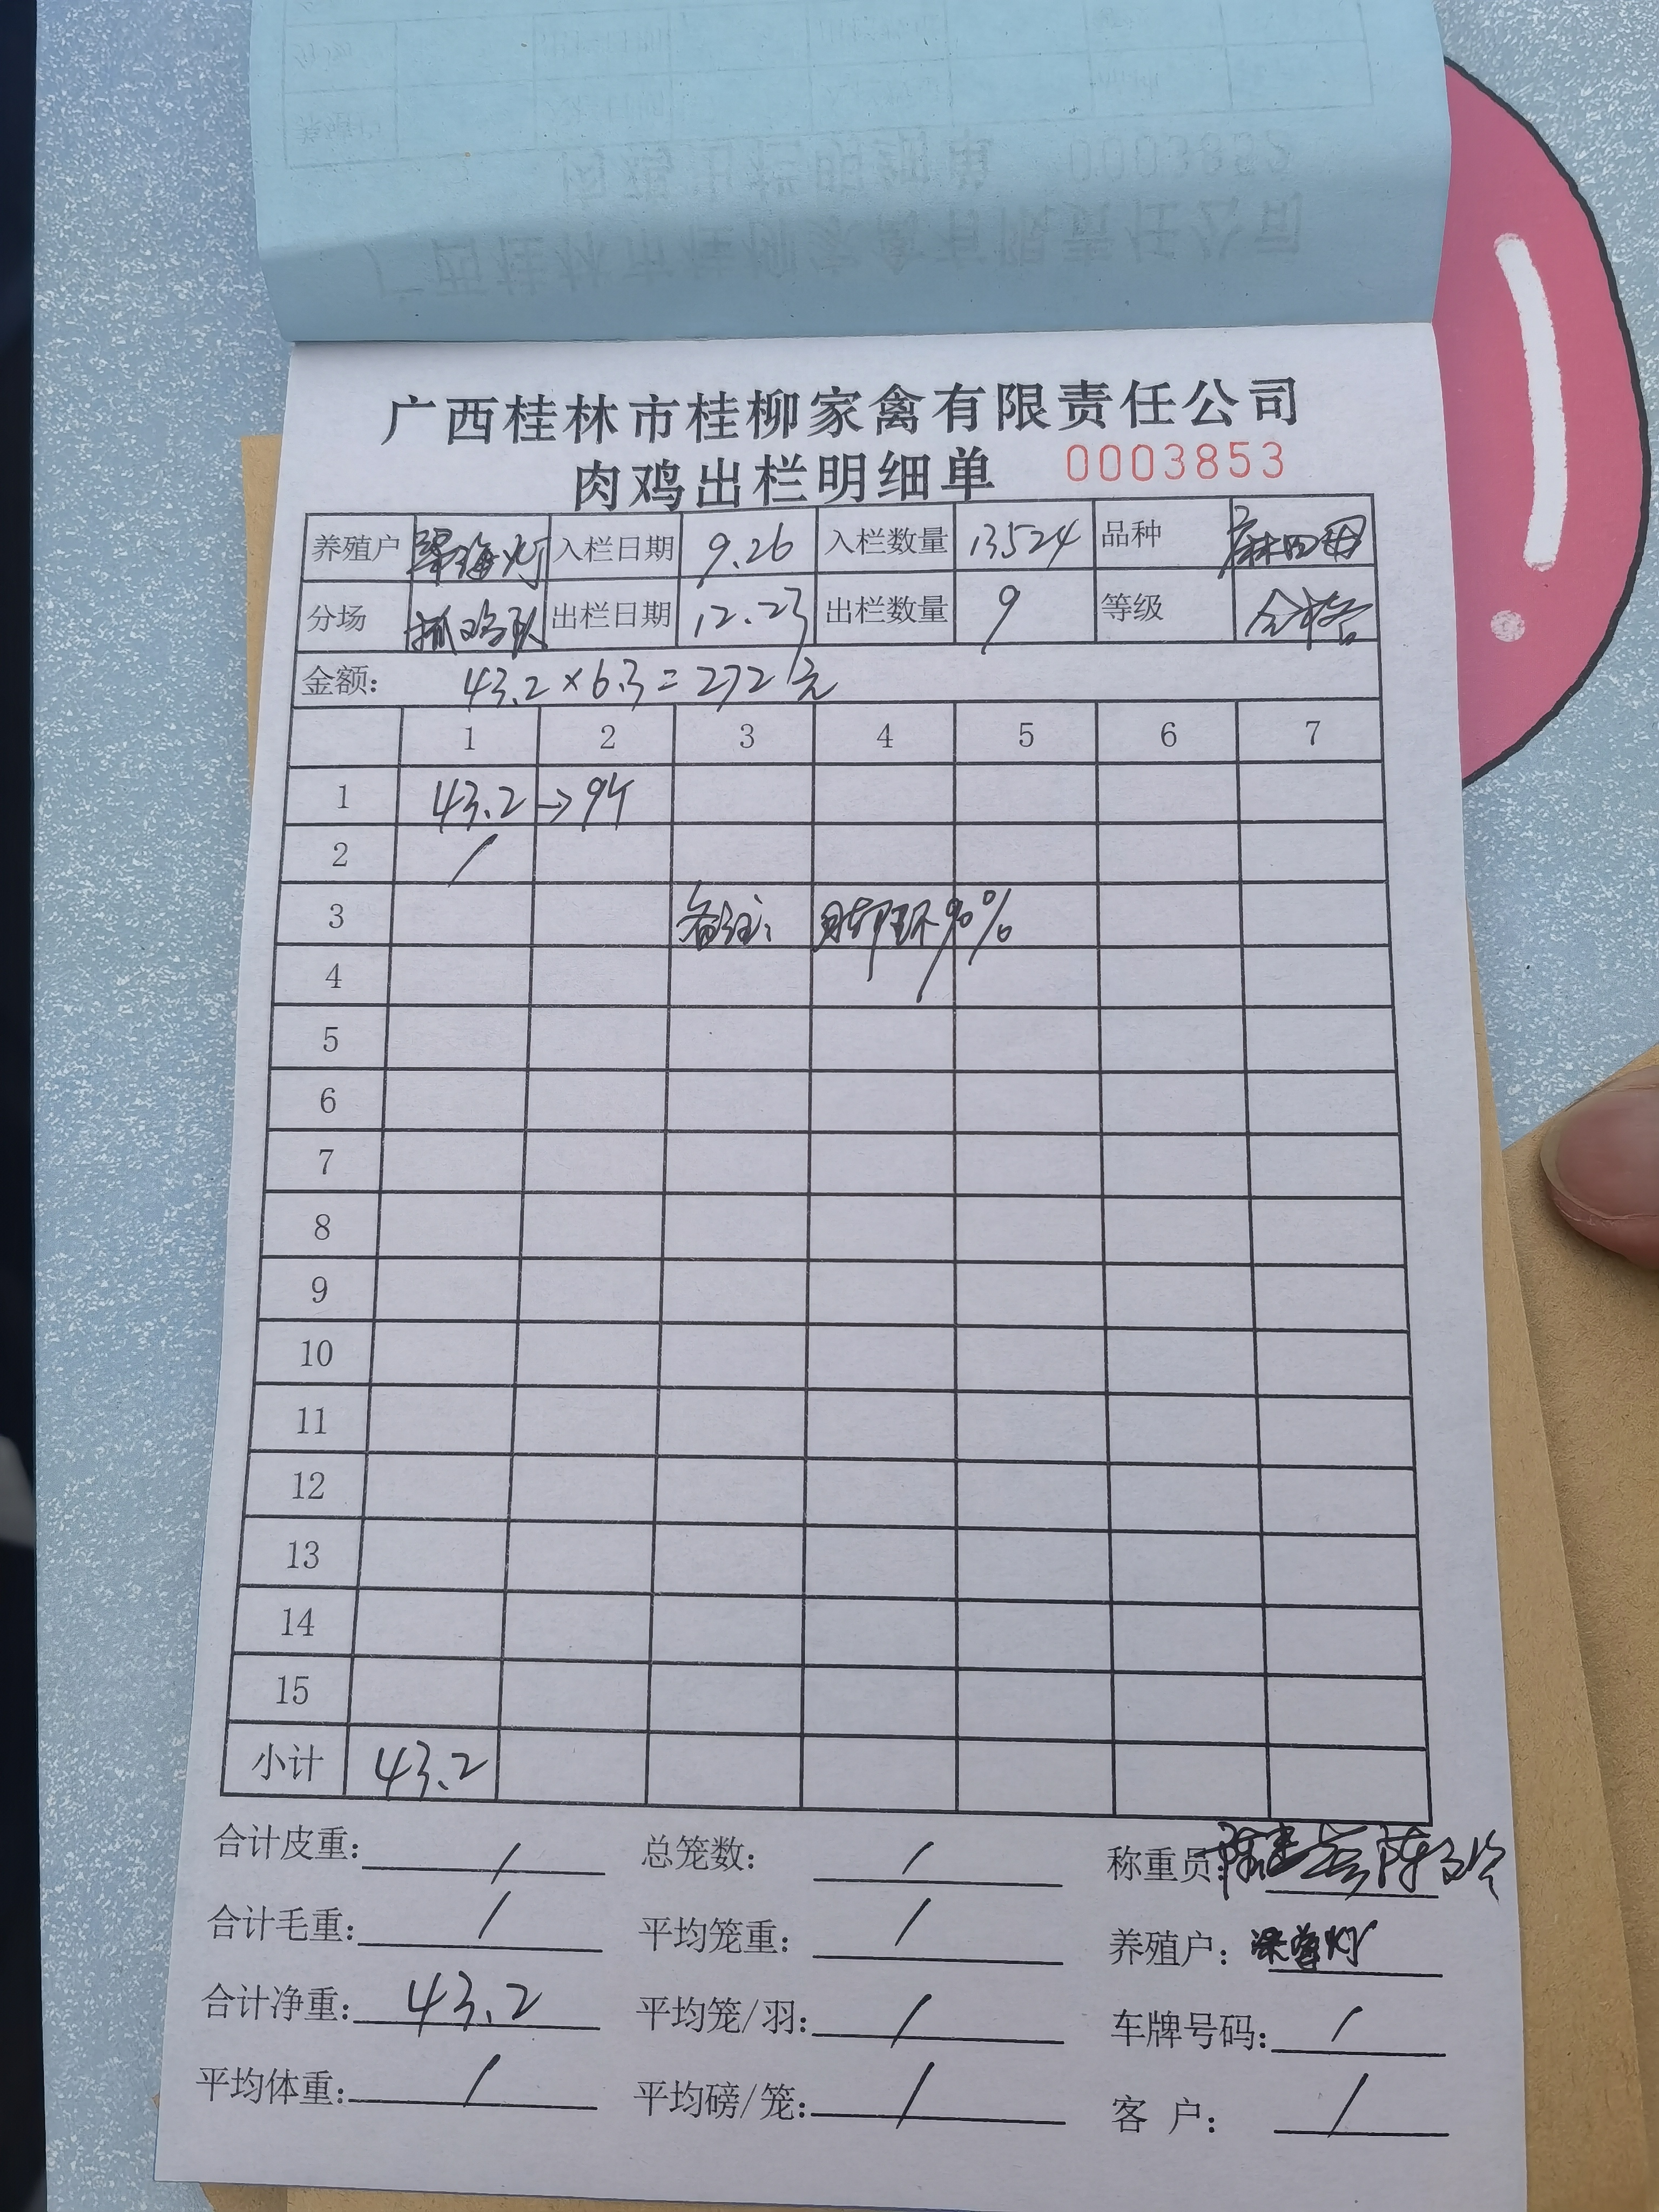 广西桂林市桂柳家禽有限责任公司
肉鸡出栏明细单 0003853
养殖户 入栏日期 9.26 入栏数量 13524 品种
分场 抓鸡队 出栏日期 12.23 出栏数量 9 等级 合格
金额: 43.2×6.3=272元
1 2 3 4 5 6 7
1 43.2 →9个
2 /
3 备注: 90%
4
5
6
7
8
9
10
11
12
13
14
15
小计 43.2
合计皮重: / 总笼数: / 称重员:
合计毛重: / 平均笼重: / 养殖户:
合计净重: 43.2 平均笼/羽: / 车牌号码: /
平均体重: / 平均磅/笼: / 客户: /